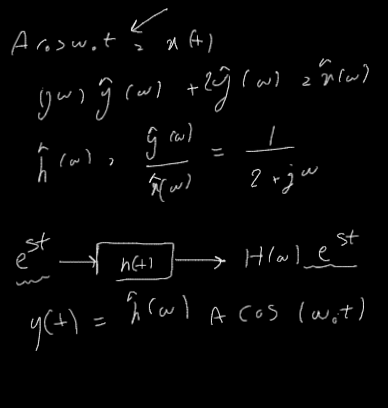 A cos ω₀t = x(t)
(jω) ŷ(ω) + 2ŷ(ω) = x̂(ω)
ĥ(ω) = ŷ(ω)/x̂(ω) = 1/(2 + jω)
eˢᵗ → h(t) → H(ω) eˢᵗ
y(t) = ĥ(ω) A cos (ω₀t)